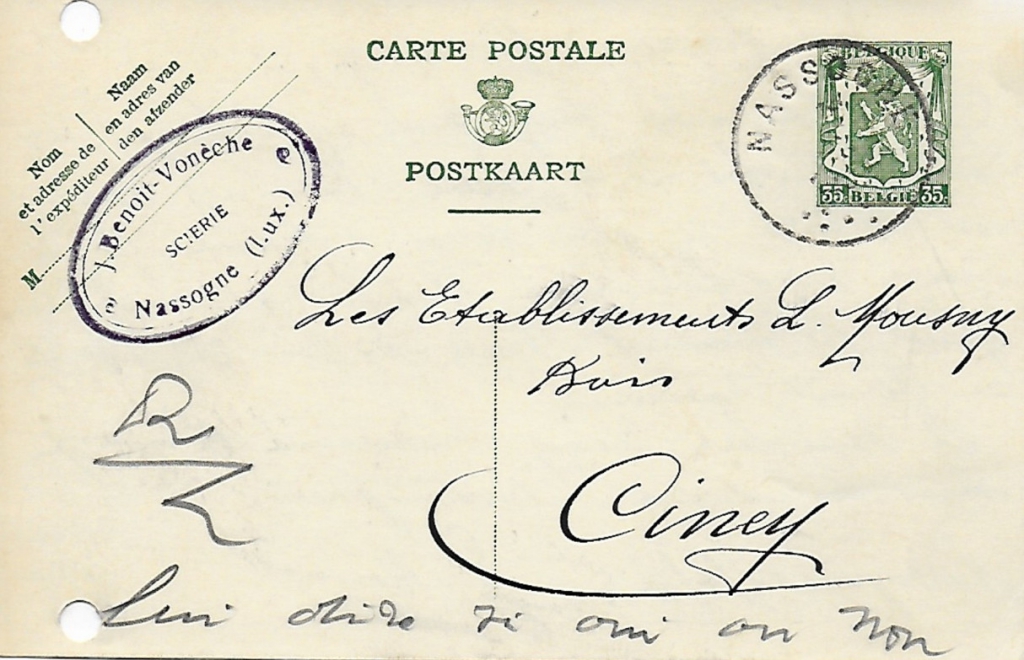 CARTE POSTALE
POSTKAART
Nom
et adresse de
l'expéditeur
Naam
en adres van
den afzender
M
J. Benoit-Vonèche
SCIERIE
Nassogne (Lux.)
BELGIQUE
35c BELGIË 35c
NASSOGNE
Les Etablissements L. Mousny
Bois
Ciney
R
Lui dire si oui ou non